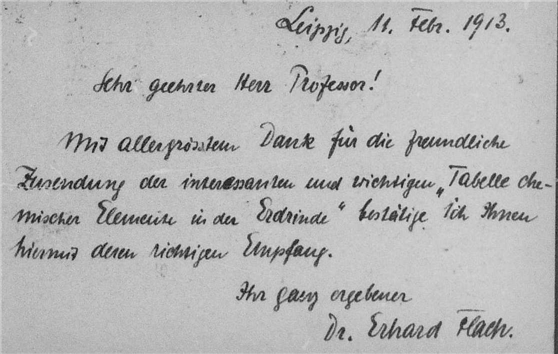 Leipzig, 11. Febr. 1913.
Sehr geehrter Herr Professor!
Mit allergrösstem Dank für die freundliche
Zusendung der interessanten und wichtigen „Tabelle che-
mischer Elemente in der Erdrinde“ bestätige ich Ihnen
hiermit deren richtigen Empfang.
Ihr ganz ergebener
Dr. Erhard Flach.